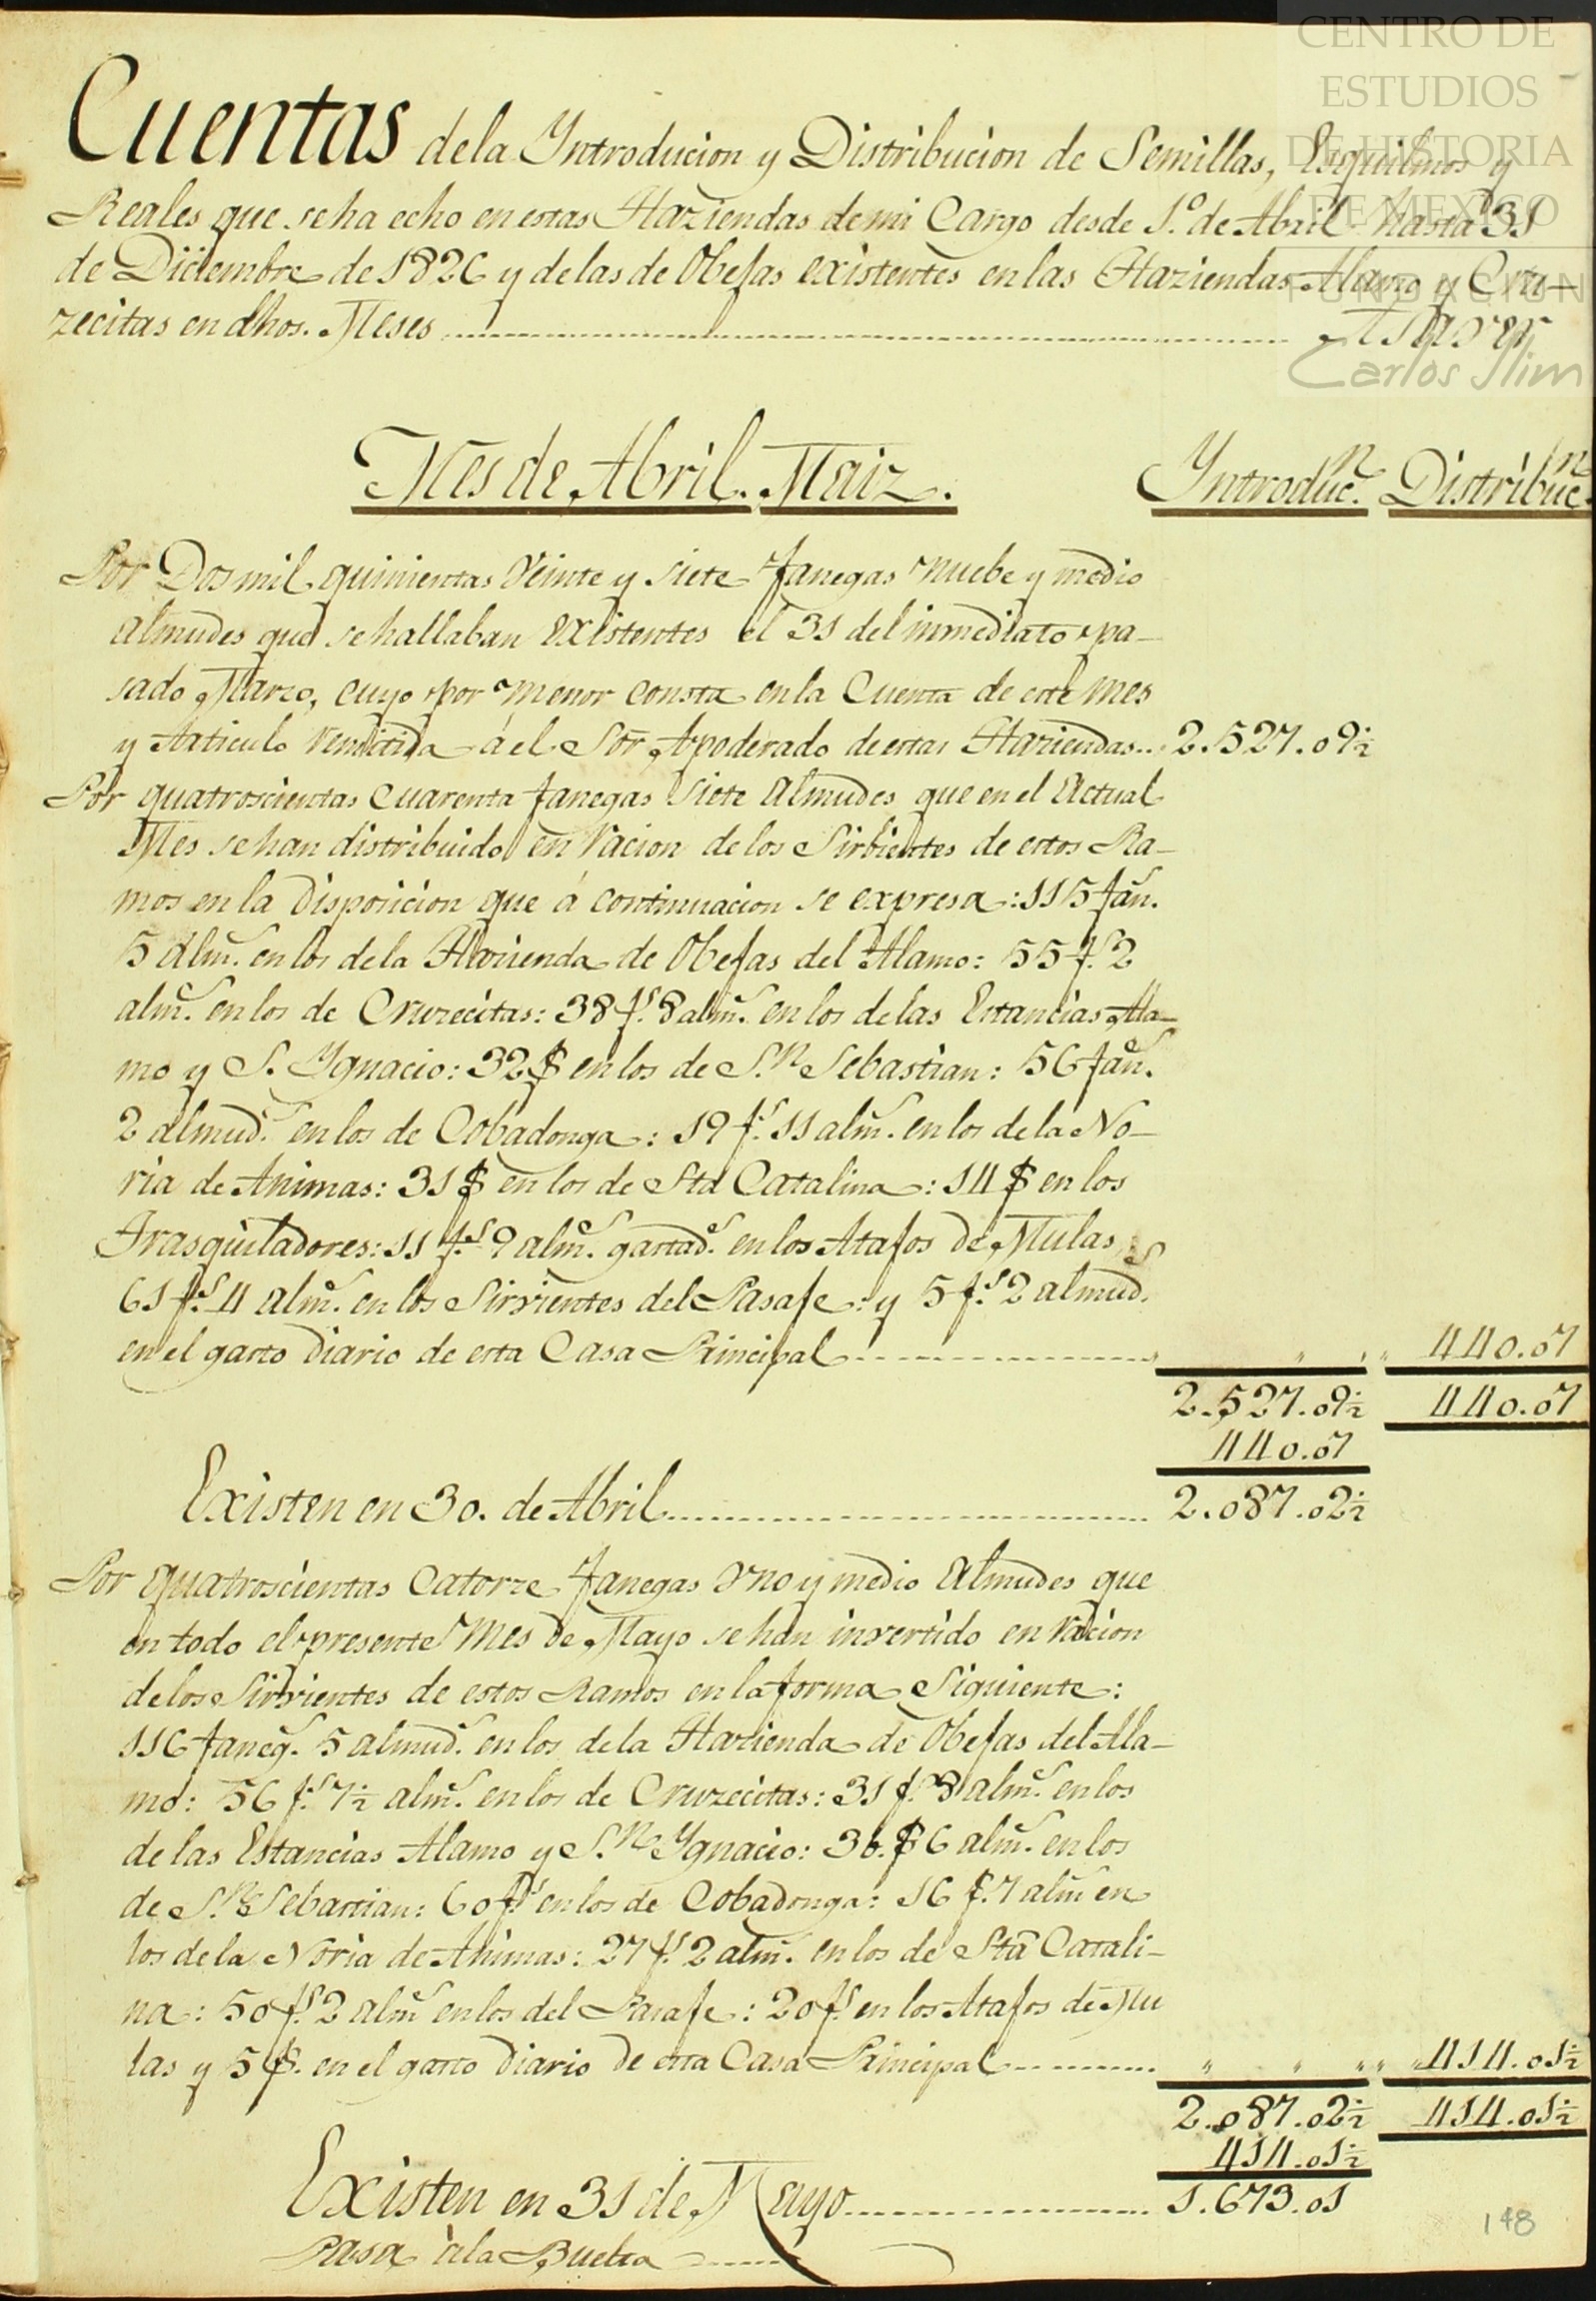 CENTRO DE
ESTUDIOS
DE HISTORIA
DE MEXICO
FUNDACION
Carlos Slim
Cuentas dela Yntroducion y Distribucion de Semillas, Esquilmos y
Reales que seha echo en estas Haziendas demi Cargo desde 1.º de Abril hasta 31
de Diciembre de 1826 y delas de Obejas existentes en las Haziendas Alamo y Cru-
zecitas en dhos. Meses Asaver
Mes de Abril. Maiz. Yntroducn. Distribucn.
Por Dos mil quinientas Veinte y siete fanegas nuebe y medio
almudes que se hallaban existentes el 31 del inmediato pa-
sado Marzo, cuyo por menor consta en la Cuenta de este mes
y Articulo remitida á el Sor. Apoderado de estas Haziendas... 2.527.09½
Por quatroscientas cuarenta fanegas siete Almudes que en el Actual
Mes se han distribuido en racion de los Sirbientes de estos Ra-
mos en la Disposicion que á continuacion se expresa: 115 fans.
5 alms. en los dela Hazienda de Obejas del Alamo: 55 fs. 2
alms. en los de Cruzecitas: 38 fs. 8 alms. en los de las Estancias Ala-
mo y S. Ygnacio: 32 fs en los de Sn. Sebastian: 56 fans.
2 almuds. en los de Cobadonga: 19 fs. 11 alms. en los de la No-
ria de Animas: 31 fs en los de Sta Catalina: 14 fs en los
Trasquiladores: 11 fs. 9 alms. gastads. en los Atajos de Mulas
61 fs. 4 alms. en los Sirvientes del Pasaje: y 5 fs. 2 almuds.
en el gasto Diario de esta Casa Principal 440.07
2.527.09½ 440.07
440.07
Existen en 30. de Abril 2.087.02½
Por quatroscientas Catorze fanegas Uno y medio Almudes que
en todo el presente Mes de Mayo se han invertido en racion
de los Sirvientes de estos Ramos en la forma Siguiente:
116 fanegs. 5 almuds. en los de la Hazienda de Obejas del Ala-
mo: 56 fs. 7½ alms. en los de Cruzecitas: 31 fs. 8 alms. en los
de las Estancias Alamo y Sn. Ygnacio: 30. fs 6 alms. en los
de Sn. Sebastian: 60 fs. en los de Cobadonga: 16 fs. 7 alms en
los de la Noria de Animas: 27 fs. 2 alms. en los de Sta Catali-
na: 50 fs. 2 alms en los del Pasaje: 20 fs. en los Atajos de Mu
las y 5 fs. en el gasto Diario de esta Casa Principal 414.01½
2.087.02½ 414.01½
414.01½
Existen en 31 de Mayo 1.673.01
Pasa á la Buelta
148